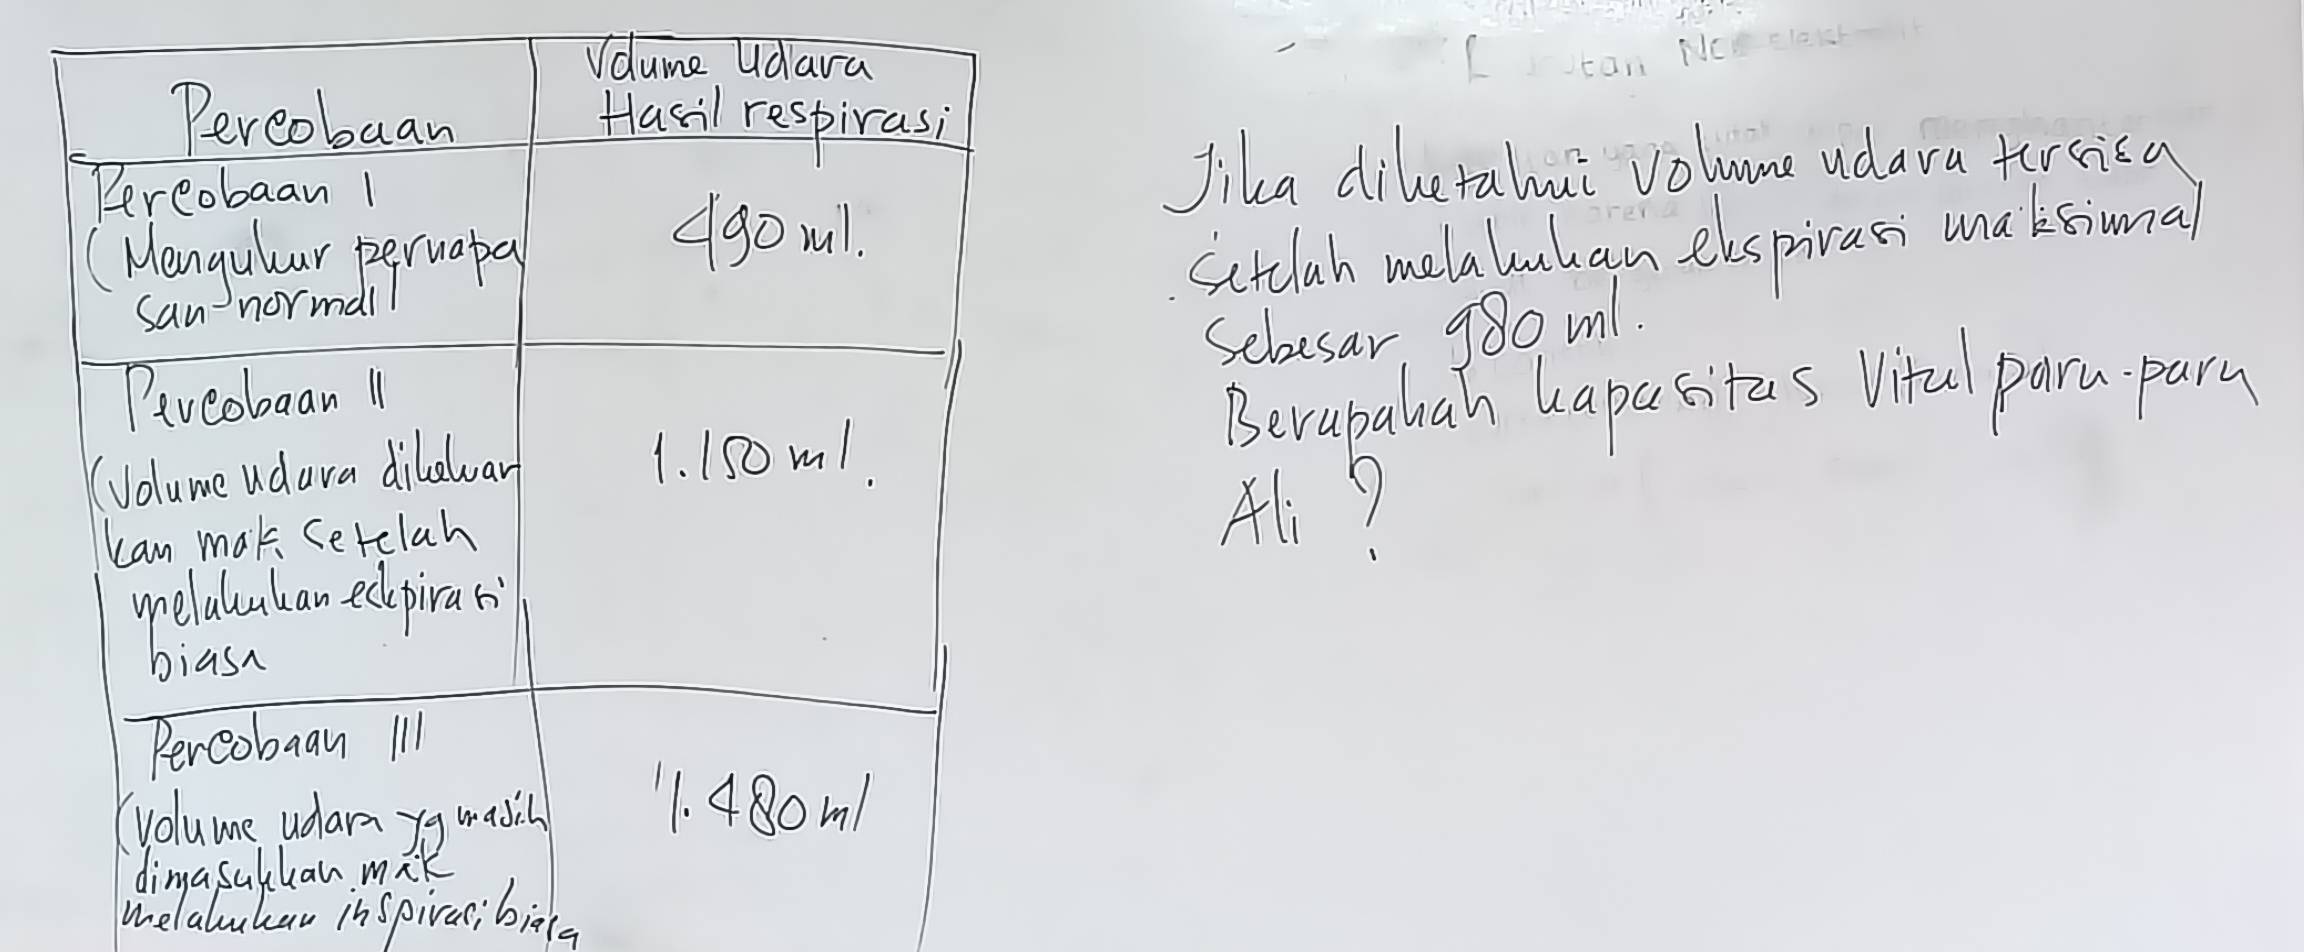 Percobaan
Volume Udara
Hasil respirasi
Percobaan I
(Mengukur pernapa
san normal)
490 ml.
Percobaan II
(Volume udara dikeluar
kan mak setelah
melakukan eckpirasi
biasa
1.150 ml.
Percobaan III
(Volume udara yg masih
dimasukkan mak
melakukan inspirasi biasa
1.480 ml
Jika diketahui volume udara tersisa
setelah melakukan ekspirasi maksimal
Sebesar 980 ml.
Berapakah kapasitas Vital paru-paru
Ali ?